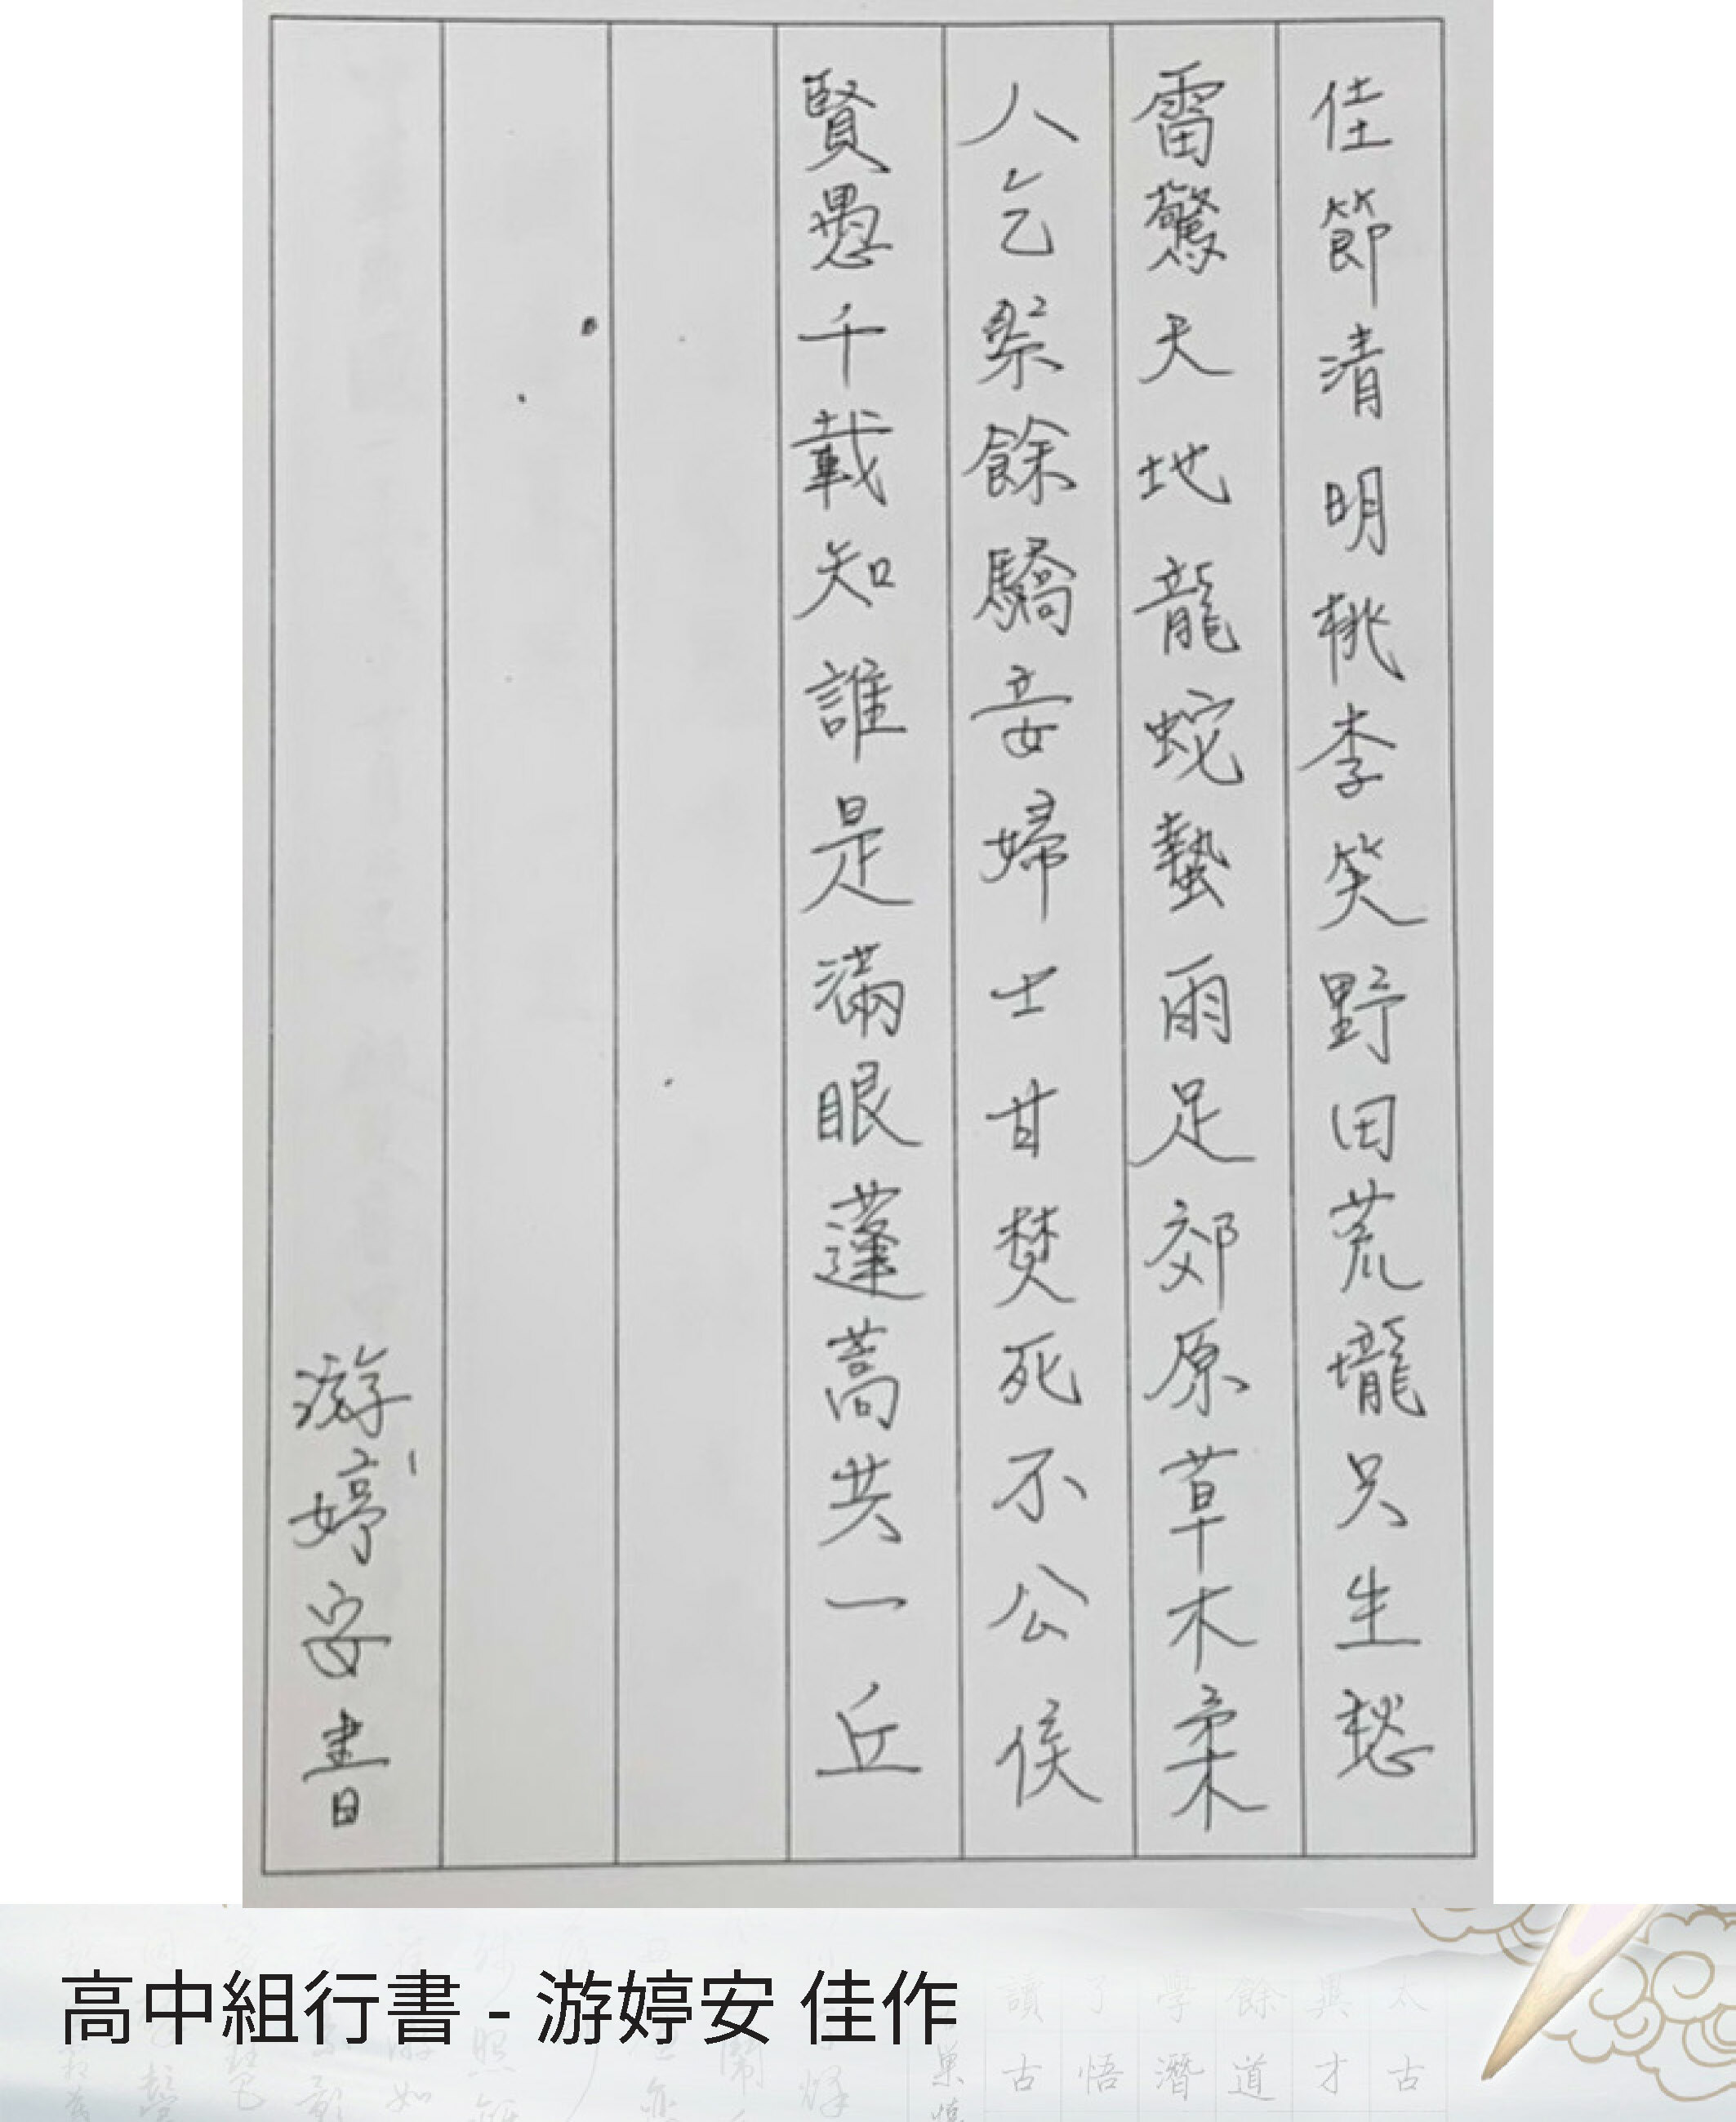 佳節清明桃李笑野田荒壠只生愁
雷驚天地龍蛇蟄雨足郊原草木柔
人乞祭餘驕妾婦士甘焚死不公侯
賢愚千載知誰是滿眼蓬蒿共一丘
游婷安書
高中組行書 - 游婷安 佳作
太與餘學了讀
古才道潛悟古